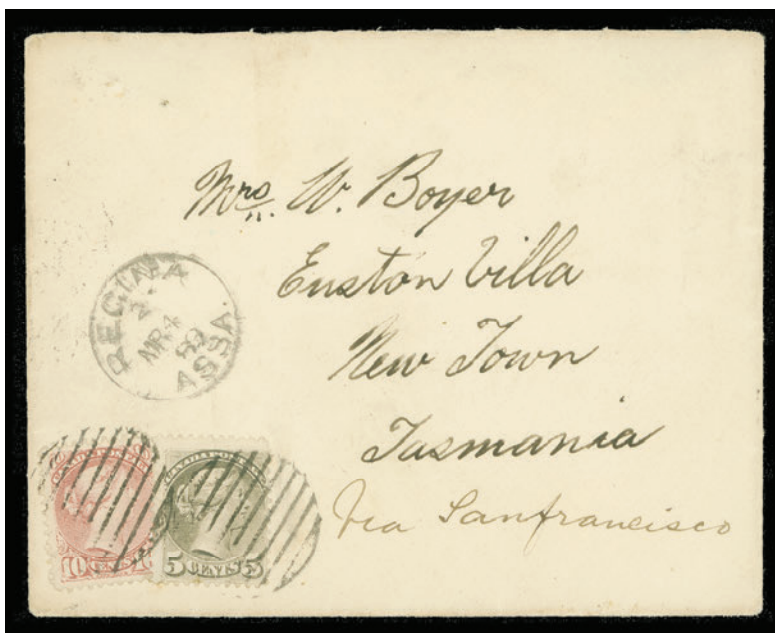 Mrs. W. Boyer
Euston Villa
New Town
Tasmania
Via Sanfrancisco
REGINA
MR 4
89
ASSA.
CANADA POSTAGE
10 CENTS 10
5 CENTS 5